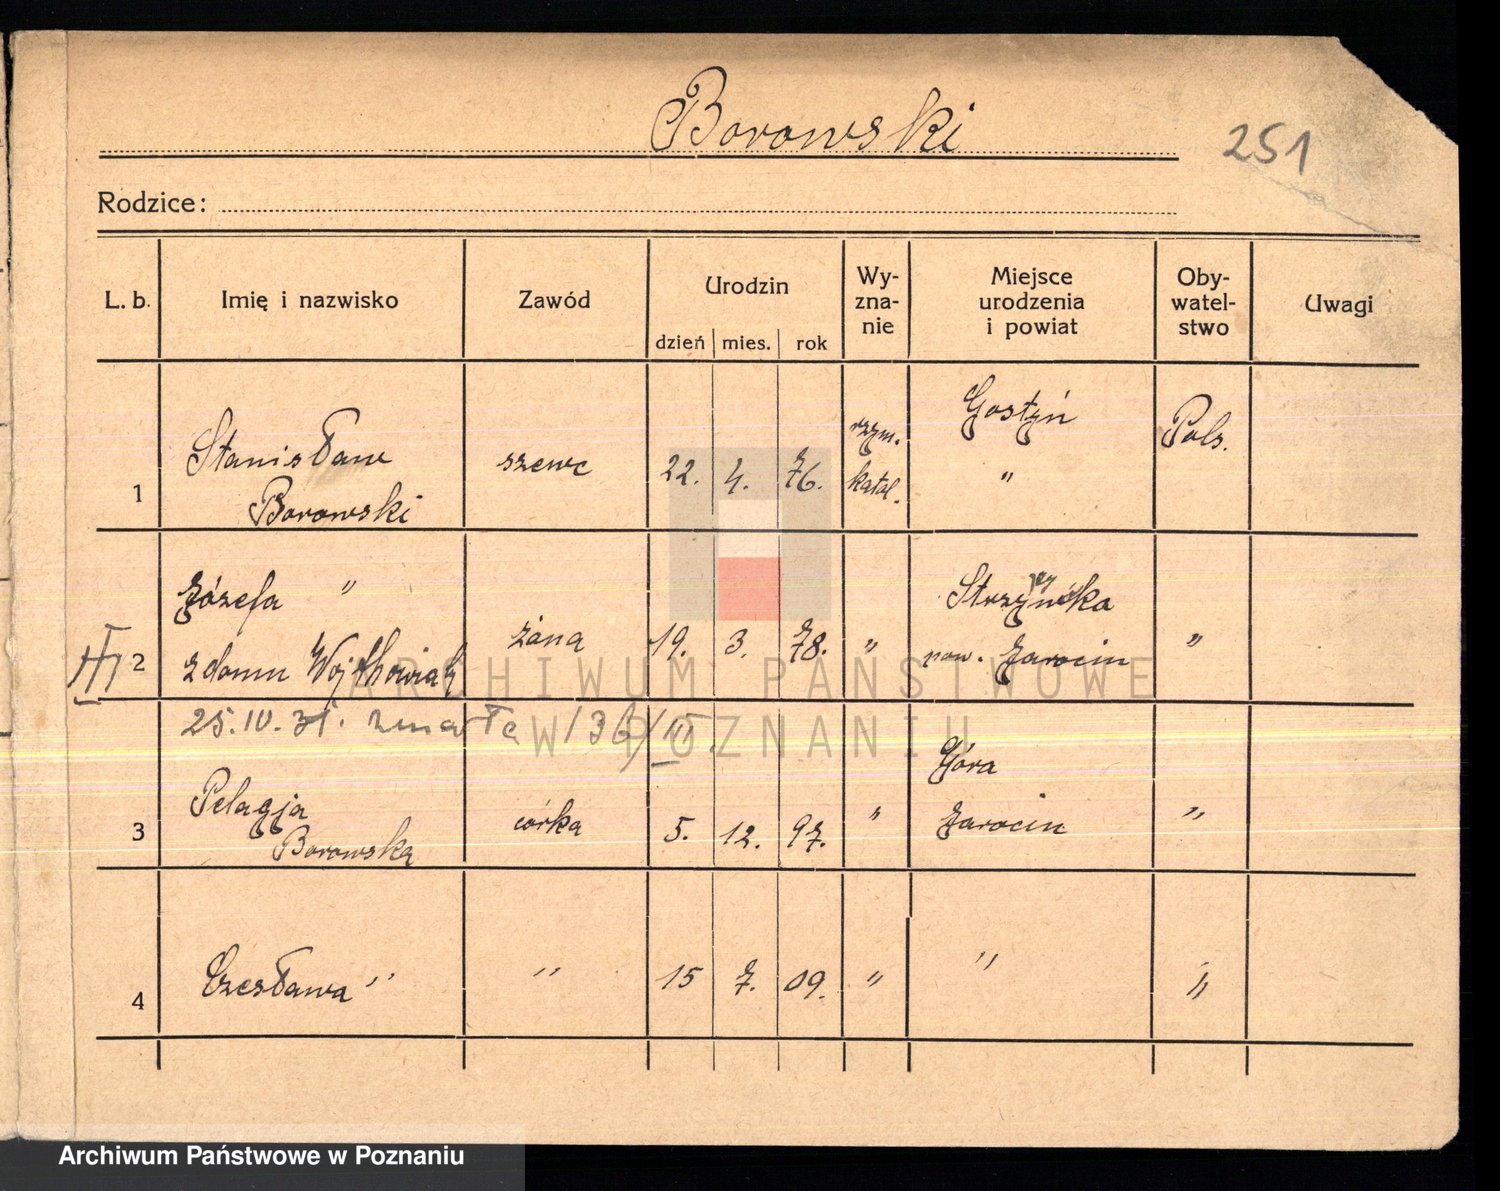 Borowski
251
Rodzice:
L. b. Imię i nazwisko Zawód Urodzin dzień mies. rok Wy-zna-nie Miejsce urodzenia i powiat Oby-watel-stwo Uwagi
Gostyń
1 Stanisław szewc 22. 4. 76. rzym. katol. " Pols.
Borowski
Józefa "
2 z domu Wojtkowiak żona 19. 3. 78. " pow. Jarocin "
III
25. IV. 31. zmarła 136/III
Góra
Pelagja
3 Borowska córka 5. 12. 97. " Jarocin "
4 Czesława " " 15 7. 09. " " "
ARCHIWUM PAŃSTWOWE
W POZNANIU
Archiwum Państwowe w Poznaniu